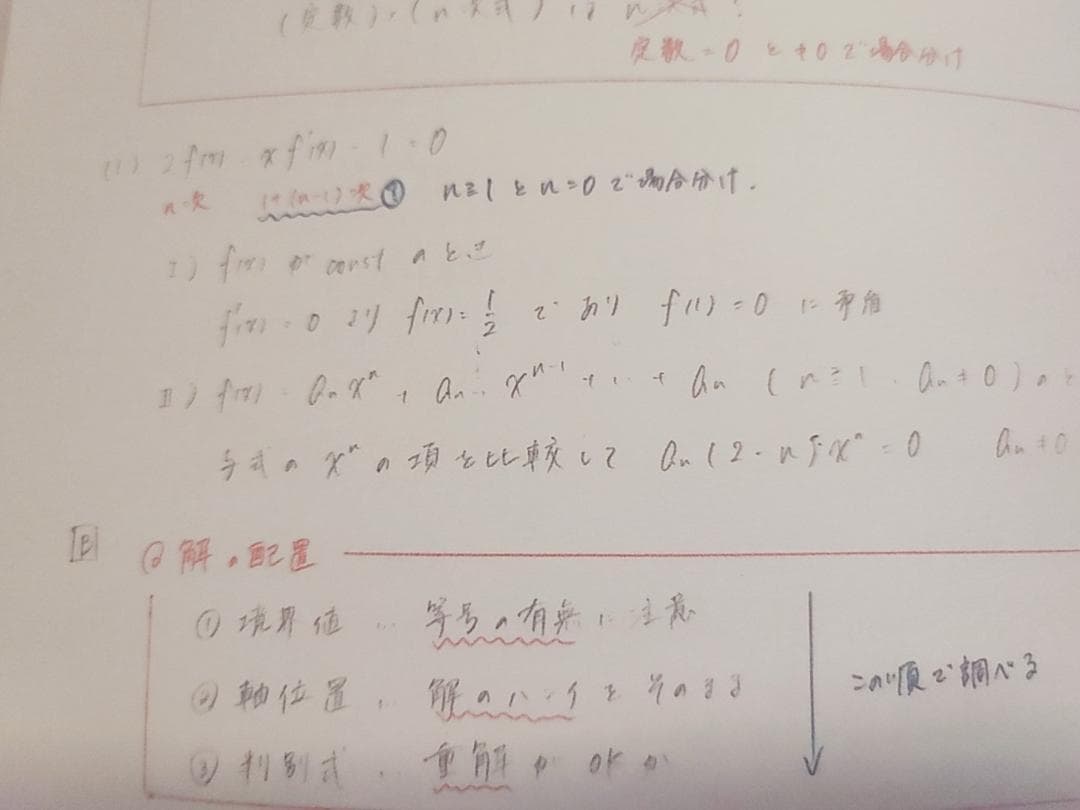 (定数)・(n次式) は n次式?
定数=0 と ≠0 で場合分け
(1) 2f(x) - xf'(x) - 1 = 0
n次 1+(n-1)次 ① n≧1 と n=0 で場合分け.
I) f(x) が const のとき
f'(x) = 0 より f(x) = 1/2 であり f(1) = 0 に矛盾
II) f(x) = anx^n + an-1x^n-1 + … + an (n≧1, an≠0) のと
与式の x^n の項を比較して an(2-n)x^n = 0 an≠0
[B] ◎ 解の配置
① 境界値 … 等号の有無に注意
② 軸位置 … 解のハンイをそのまま
③ 判別式 … 重解が OK か
この順で調べる